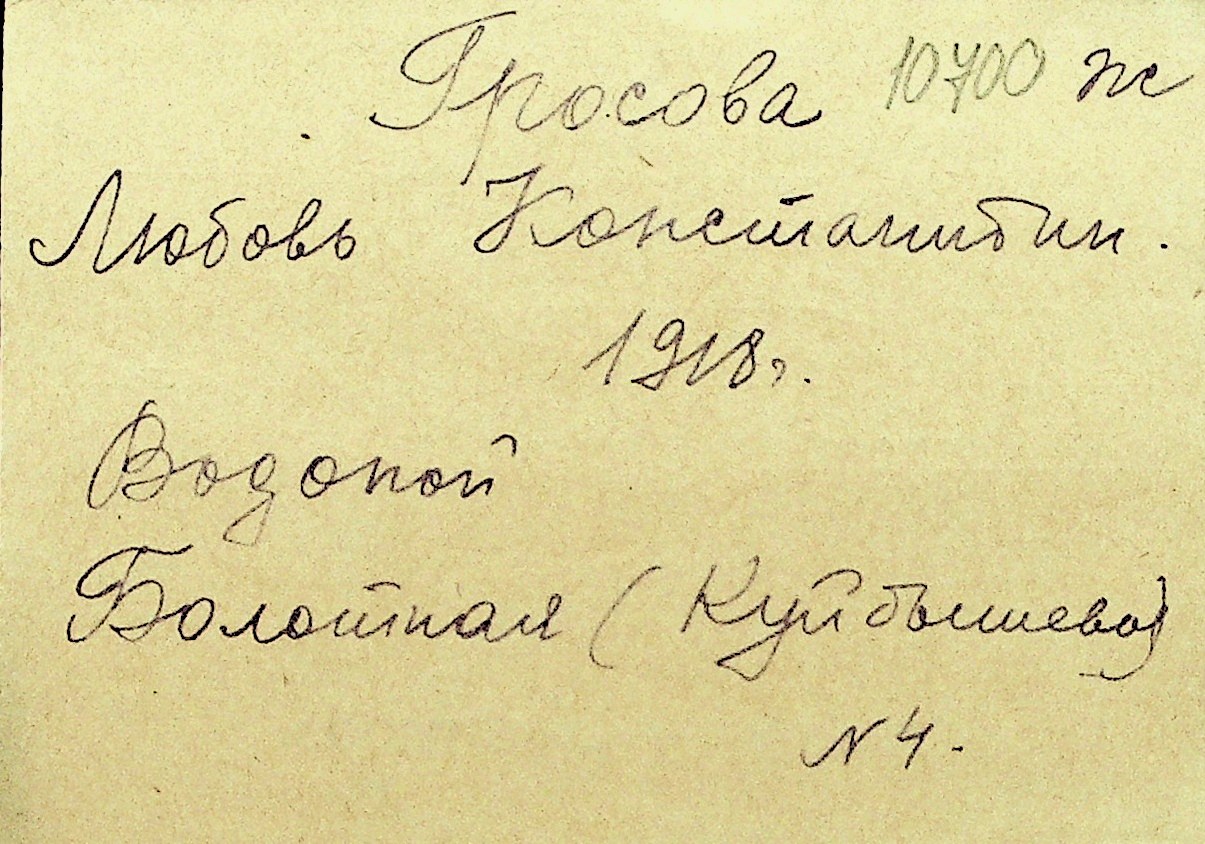 Гросова 10700 ж
Любовь Константин.
1918г.
Водопой
Болотная (Куйбышева)
N 4.